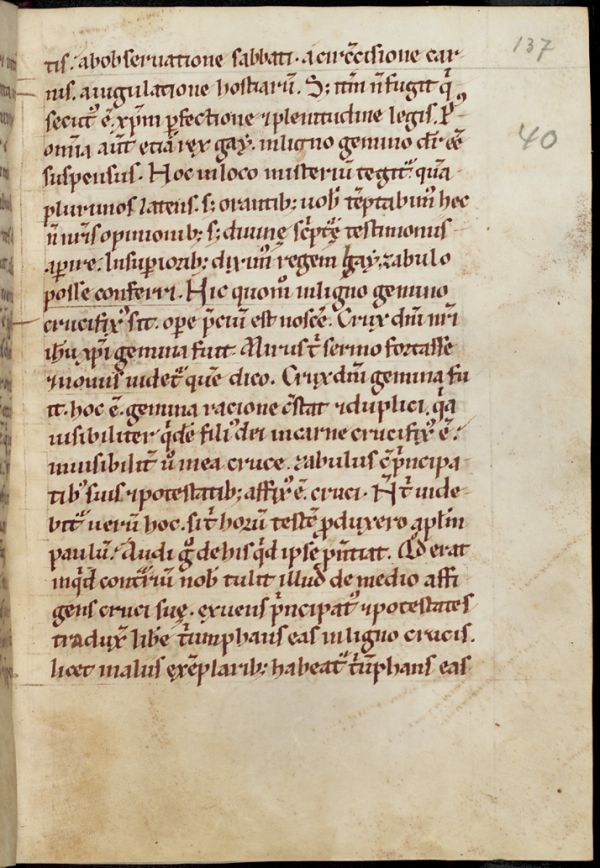 137
40
tis. ab observatione sabbati. a circ̄cisione car
nis. a iugulatione hostiarū. S; tm̄ n̄ fugit q̄
secut᷒ ē. xp̄m perfectione ⁊ plenitudine legis. P᷒
omnia aut̄ etiā rex gay. in ligno gemino dr̄ ēē
suspensus. Hoc in loco misteriū tegit᷑ quā
plurimos latens. s; orantib; uob̄ tēptabim᷒ hec
n̄ nr̄is opinionib; s; diuinę scᵖtę testimoniis
aperire. In superiorib; dixim᷒ regem gay. zabulo
posse conferri. Hic quom̊ in ligno gemino
crucifix᷒ sit. operę p̄ciū est noscē. Crux dn̄i nr̄i
ih̄u xp̄i gemina fuit. Mirus t̄ sermo fortasse
⁊ nouus uidet᷑ quē dico. Crux dn̄i gemina fu
it. hoc ē. gemina racione c̄stat ⁊ duplici. q̄a
uisibiliter q̄dē fili᷒ dei in carne crucifix᷒ ē.
inuisibilit̄ ū in ea cruce. zabulus c̄ p̄ncipa
tib᷒ suis ⁊ potestatib; affix᷒ ē cruci. N̄ t̄ uide
bit᷑ uerū hoc. si t̄ horū testē produxero apl̄m
paulū. Audi g̊ de his q̄d ipse p̄nt̄iat. Qd̄ erat
inq̄d contᵃriū nob̄ tulit illud de medio affi
gens cruci suę. exuens p̄ncipat᷒ ⁊ potestates
tradux̄ libē t̄umphans eas in ligno crucis.
licet in alus exēplarib; habeat᷑ t̄ūphans eas